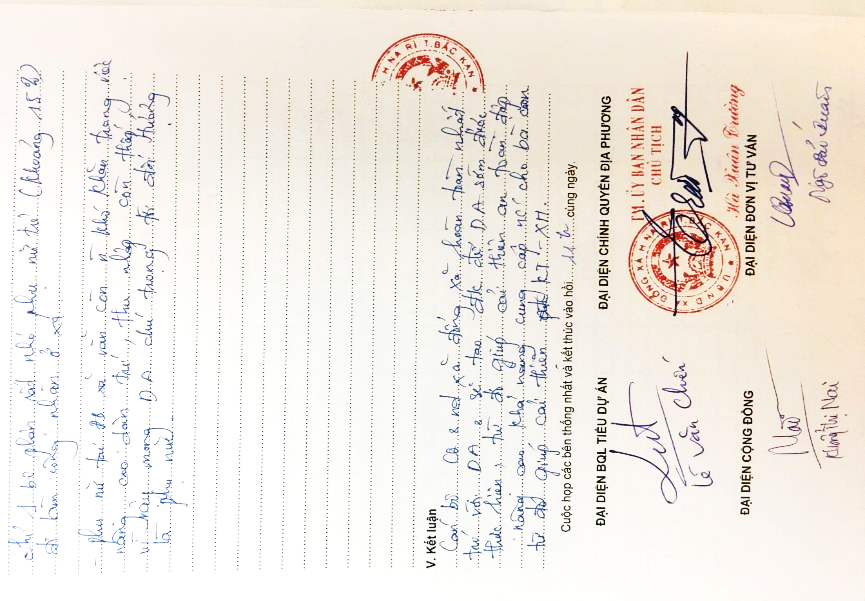 chỉ 1 bộ phận rất nhỏ phụ nữ trẻ (khoảng 15%)
đi làm công nhân ở xa
- phụ nữ tại đb xã vẫn còn n khó khăn trong việc
nâng cao dân trí, thu nhập còn thấp,
vì vậy mong D.A chú trọng tới đối tượng
là phụ nữ.
H NA RÌ T.BẮC KẠN
V. Kết luận
Cán bộ và nd xã Động xá hoàn toàn nhất
trí với D.A & sẽ tạo đk để D.A sớm được
thực hiện, từ đó giúp cải thiện an toàn đập
nâng cao khả năng cung cấp nc cho bà con
từ đó giúp cải thiện KT-XH.
Cuộc họp các bên thống nhất và kết thúc vào hồi 11h cùng ngày.
ĐẠI DIỆN BQL TIỂU DỰ ÁN
ĐẠI DIỆN CHÍNH QUYỀN ĐỊA PHƯƠNG
TM. ỦY BAN NHÂN DÂN
CHỦ TỊCH
Lê Văn
Hà Xuân Trường
ĐẠI DIỆN CỘNG ĐỒNG
ĐẠI DIỆN ĐƠN VỊ TƯ VẤN
Nông Thị Nai
Ngô